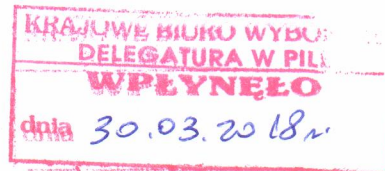 KRAJOWE BIURO WYBO
DELEGATURA W PIL
WPŁYNĘŁO
dnia 30.03.2018r.